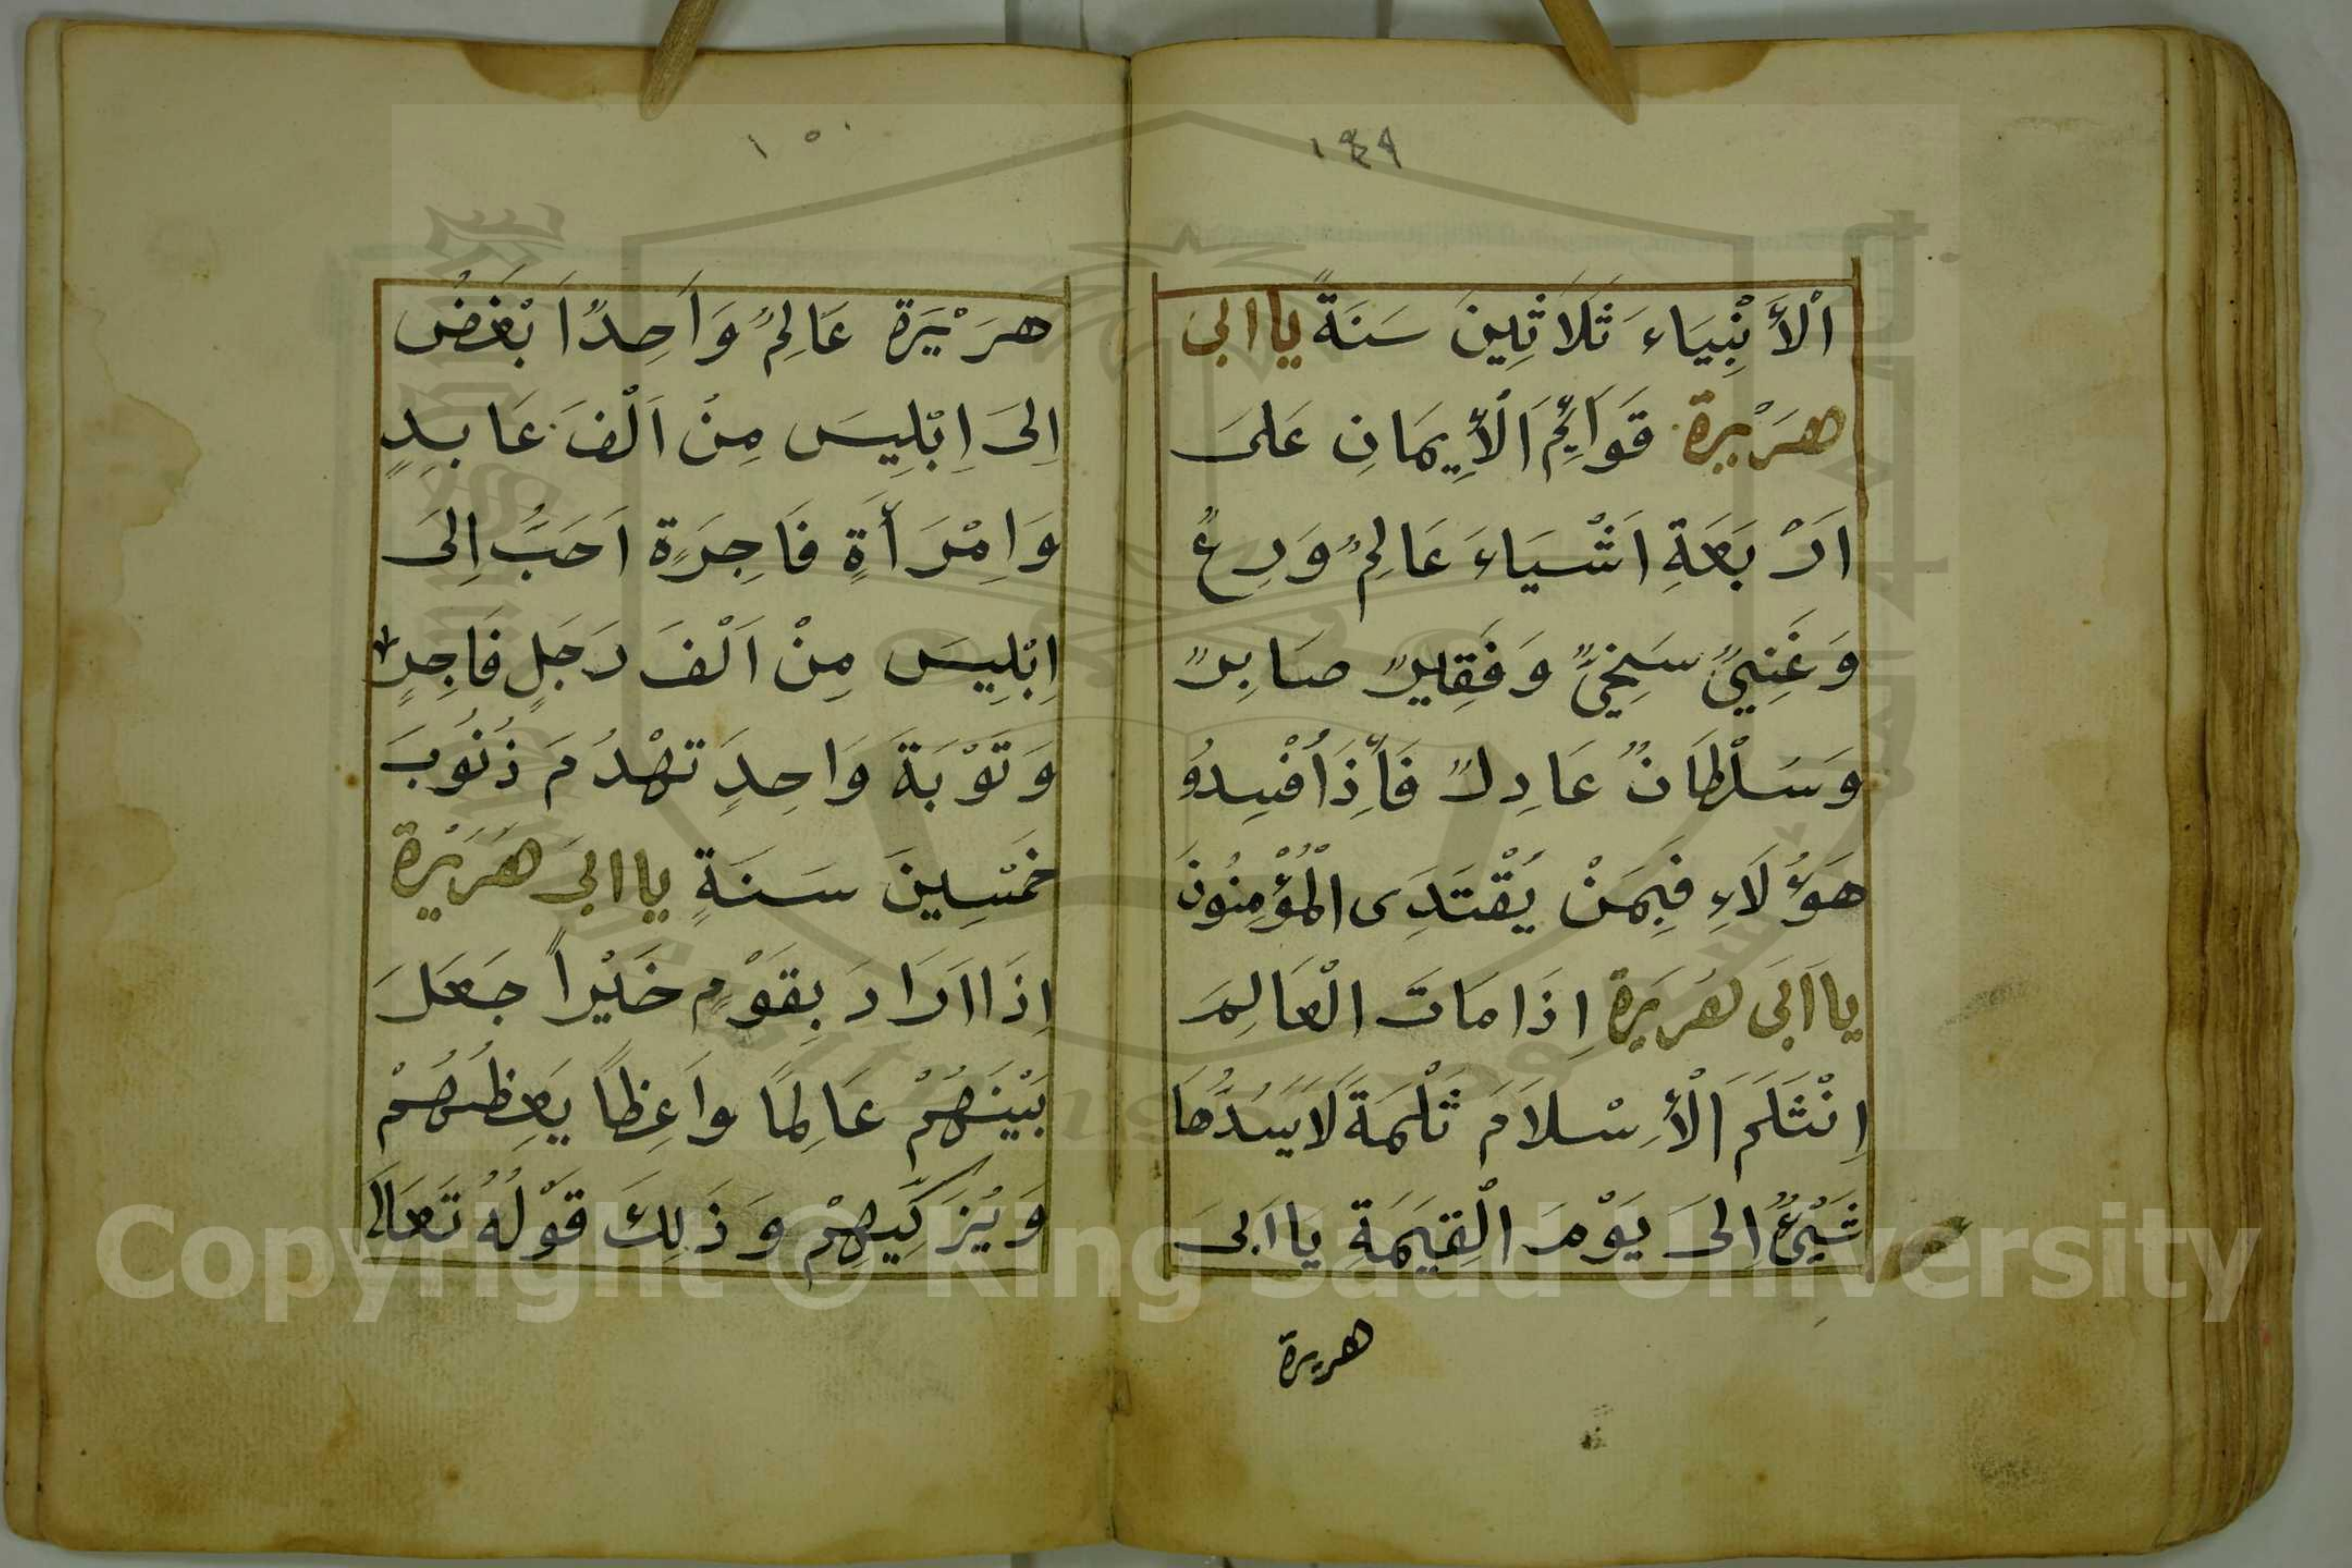 ١٤٩
اْلأَنْبِيَاءَ ثَلَاثِينَ سَنَةً يا ابى
هرَيْرة قَوَائِمُ اَلْأِيمَانِ عَلىَ
اَرْبَعَةِ اَشْيَاءَ عَالِمٌ وَرِعٌ
وَغَنِيٌّ سَخِيٌّ وَفَقِيرٌ صَابِرٌ
وَسَلْطَانٌ عَادِلٌ فَأِذَا اُفْسِدُو
هَؤُلَاءِ فَبِمَنْ يُقْتَدِى الْمُؤْمِنُونَ
يا اَبَى هُرَيرَة اِذَا مَاتَ الْعَالِمَ
اِنْثَلَمَ اَلْأِسْلَامَ ثَلْمَةَ لَايَسُدُّهَا
شَيْئٌ اِلىَ يَوْمَ الْقِيَمَةِ يَا اَبىَ
هريرة
١٥٠
هرَيْرَة عَالِمٌ وَاَحِدًا بَغْضُ
اِلىَ اِبْلِيسَ مِنْ اَلْفَ عَابِدٍ
وَاِمْرَأَةٍ فَاجِرَةٍ اَحَبُّ اِلىَ
اِبْلِيسَ مِنْ اَلْفَ رَجَلٍ فَاجِرٍ
وَتَوْبَةَ وَاحِدٍ تَهْدُمَ ذُنُوبَ
خَمْسِينَ سَنَةٍ يا ابىَ هُرَيْرَة
اِذَا اَرَادَ بِقَوْمٍ خَيْراً جَعَلَ
بَيْنَهُمْ عَالِمًا وَاعِظاً يَعِظُهُمْ
وَيُزَكِّيهِمْ وَذَلِكَ قَوْلُهُ تَعَالَى
Copyright © King Saud University